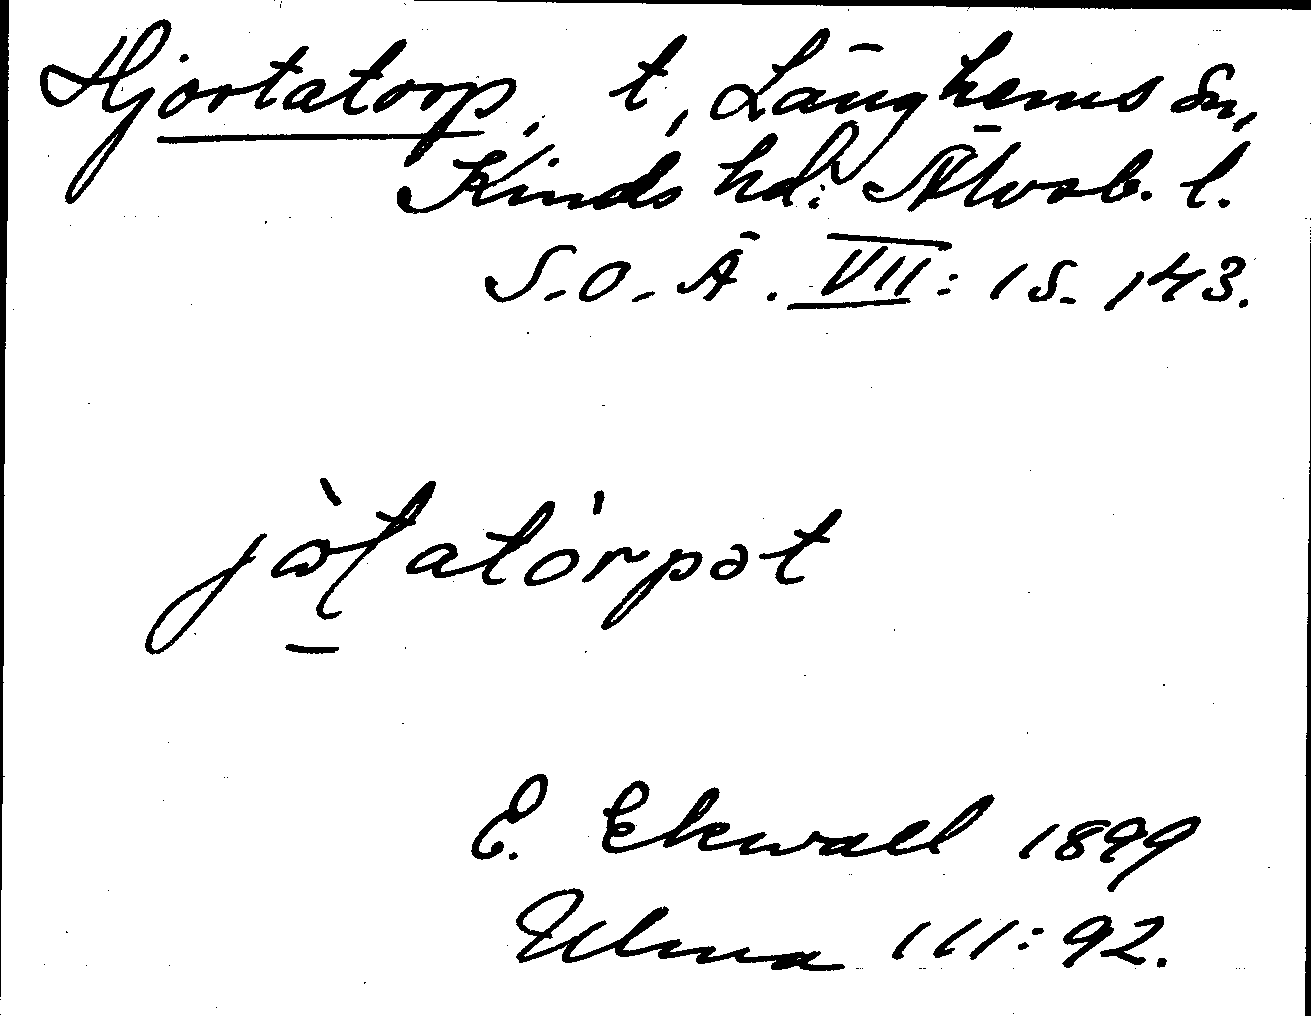 Hjortatorp, t, Länghems sn,
Kinds hd. Älvsb. l.
S.O.Ä. VII: 1 S. 143.
jò̱ťatórpət
E. Ekwall 1899
Ulma 111:92.